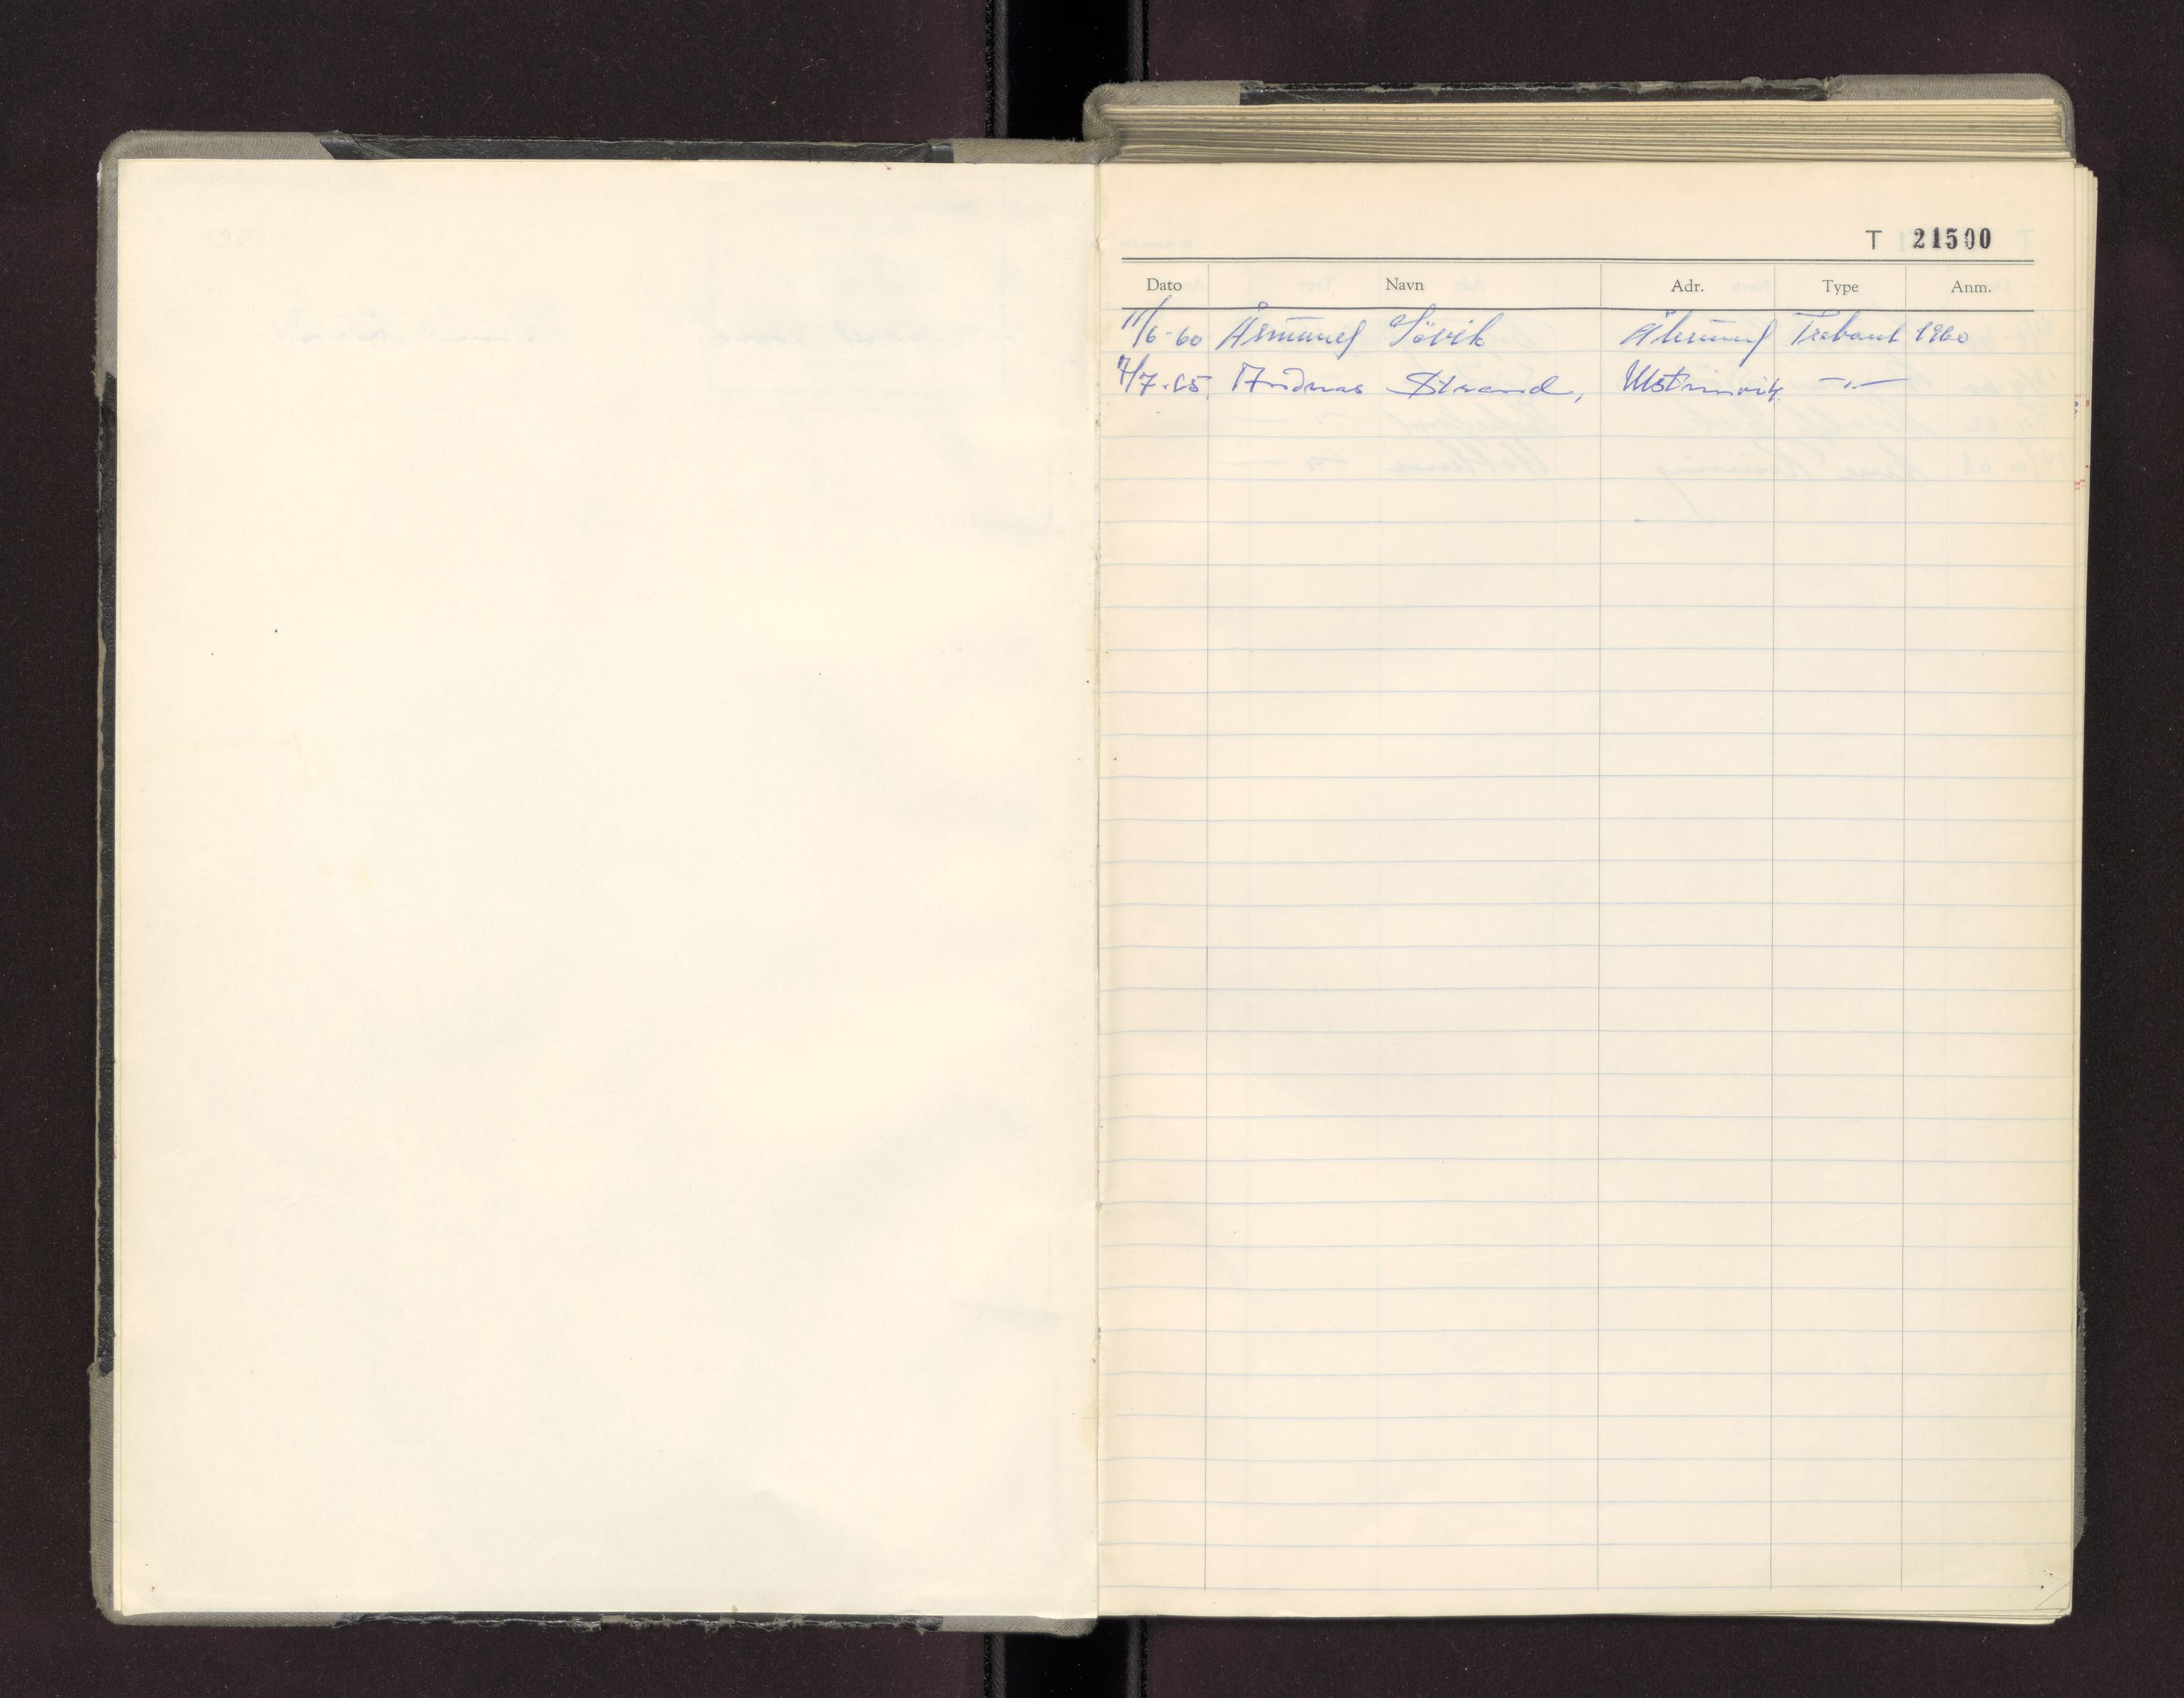 T 21500
Dato Navn Adr. Type Anm.
11/6-60 Åsmund Søvik Ålesund Trabant 1960
7/7-65. Andreas Strand, Ulsteinvik -"-